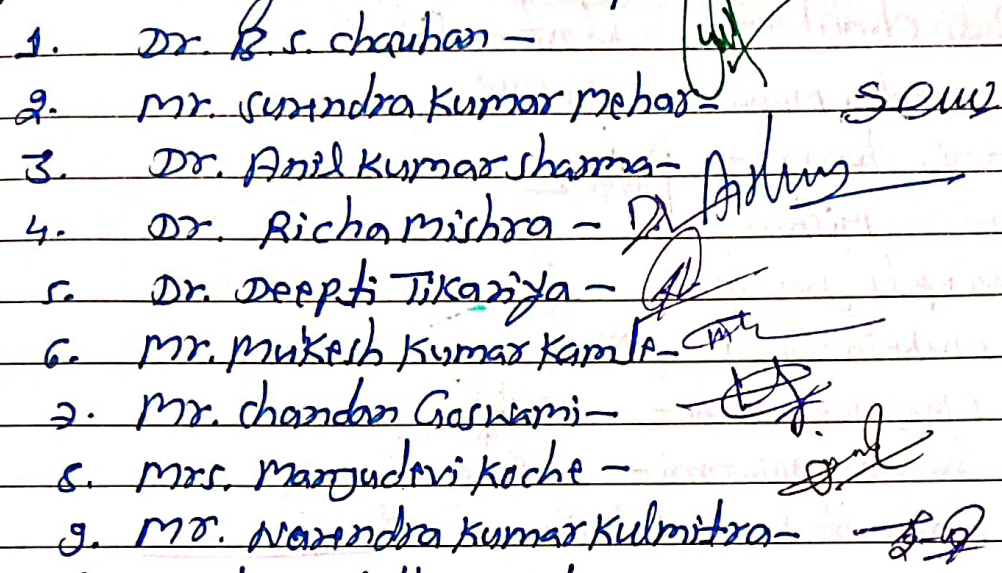 1. Dr. B. S. Chauhan -
2. Mr. Surendra Kumar Mehar-
3. Dr. Anil Kumar Sharma-
4. Dr. Richa Mishra -
5. Dr. Deepti Tikariya -
6. Mr. Mukesh Kumar Kamle-
7. Mr. Chandan Goswami-
8. Mrs. Manjudevi Koche -
9. Mr. Narendra Kumar Kulmitra-